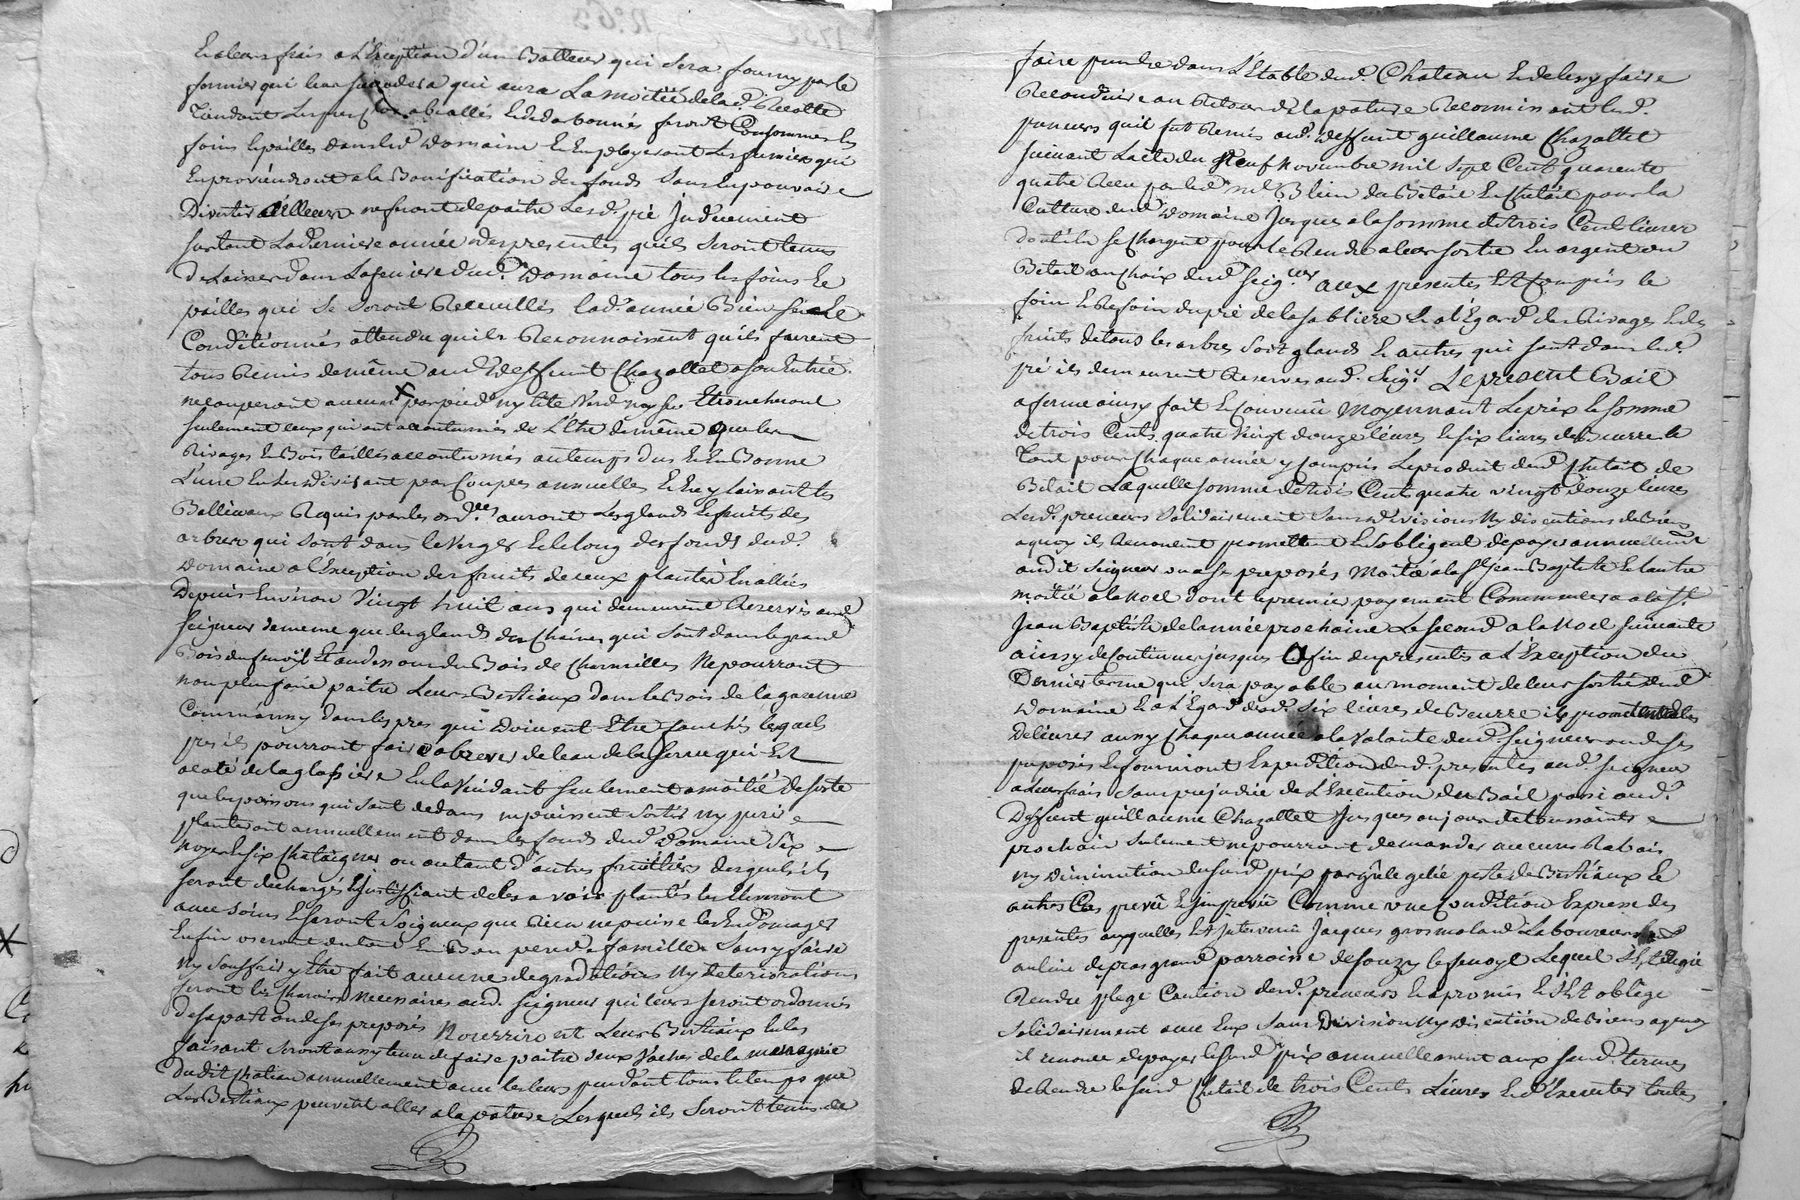 a leurs frais a l'Exception d'un Batteur qui sera fourny par le
fermier qui leur succedera qui aura La moitié de la d. Recolte
foins et pailles dans led. Domaine et Employeront Les fumiers qui
En proviendront a la Bonification des fonds sans En pouvoir
Divertir ailleurs ne feront depaitre Les d. pré Induement
surtout La derniere année des presentes qu'ils seront tenus
De Laisser dans La feniere dud. Domaine tous les foins et
pailles qui se seront Receuillés lad. année Bien sec et
Conditionnés attendu qu'ils Reconnoissent qu'ils furent
tous Remis de même aud. deffunt Chazallet a son Entrée.
ne couperont aucun x par pied ny tête Verd ny sec Etroncheront
seulement ceux qui ont accoutumés de L'Etre de même que les
Rivages et Bois taillis accoutumés au temps dus et En Bonne
Lune En les divisant par Coupes annuelles Et En y laissant les
Balliveaux Requis par les ord.ces auront Les glands et fruits des
arbres qui sont dans le Verger et le long des fonds dud.
Domaine a l'Exception des fruits de ceux plantés En allées
Depuis Environ Vingt huit ans qui demeurent Reservés aud.
Seigneur de meme que les glands des Chaines qui sont dans le grand
Bois du fenoÿl et au dessous du Bois de Charmilles Ne pourront
non plus faire paitre Leurs Bestiaux dans les Bois de la garenne
Comme aussy dans les prés qui doivent Etre fauchés lesquels
prés ils pourront faire abrever de l'eau de la serve qui Est
a coté de la glassiere En la Vuidant seulement a moitié de sorte
que les poissons qui sont dedans ne puissent sortir ny perir
planteront annuellement dans les fonds dud. Domaine Six
noyers et six Chataigners ou autant d'autres fruitiers desquels ils
seront dechargés En justifiant de les avoir plantés les Eleveront
avec soins et seront soigneux que Rien ne puisse les Endomager
Enfin useront du tout En Bon pere de famille Sans y faire
Ny souffrir y Etre fait aucunes degradations Ny deteriorations
seront les Charrois necessaires aud. Seigneur qui leurs seront ordonnés
de sa part ou de ses preposés Nourriront Leurs Bestiaux et les
faisant seront aussy tenu de faire paitre deux Vaches de la menagerie
Dudit Chateau annuellement avec les leurs pendant tous le temps que
Les Bestiaux peuvent aller a la pature Lesquels ils seront tenus de
faire prendre dans L'Etable dud. Chateau et de les y faire
Reconduire au Retour de la pature Reconnissent led.
preneurs quil fut Remis aud. deffunt guillaume Chazallet
suivant L'acte du neuf Novembre mil sept Cent quarente
quatre Recu par led. me Blein du Bétail En Chetail pour la
Culture dud. Domaine Jusques a la somme de trois Cent livres
dont ils se chargent pour le Rendre a leur sortie En argent ou
Bétail au choix dud. Seig.eur aux presentes Est Compris le
foin et Revoin du pré de la sabliere Et a l'Egard des Rivages et des
fruits de tous les arbres soit glands et autres qui sont dans led.
pré ils demeurent Reservés aud. Seig.r Le present Bail
a ferme ainsy fait et Convenu Moyennant Le prix et somme
de trois Cents quatre Vingt douze livres et six livres de Beurre le
Tout pour Chaque année y Compris Le produit dud. Chetait de
Bétail Laquelle somme de trois Cent quatre vingt douze livres
Lesd. preneurs solidairement sans division Ny discutions de Biens
a quoy ils Renoncent promettent Et s'obligent de payer annuellement
audit Seigneur ou a ses preposés Moitié a la St. Jean Baptiste Et L'autre
moitié a la Noel dont le premier payement Commencera a la St.
Jean Baptiste de l'année prochaine Le second a la Noel suivante
ainsy de Continuer jusques a fin des presentes a L'Exception du
Dernier terme qui sera payable au moment de leur sortie dud.
Domaine Et a L'Egard desd. six livres de Beurre ils promettent les
Delivrer aussy Chaque année a la Volonté dud. Seigneur ou de ses
preposés Et fourniront Expedition des d. presentes aud. Seigneur
a leur frais sans prejudice de L'Execution du Bail passé aud.
Deffunt guillaume Chazallet Jusques au jour de toussaints
prochain seulement ne pourront demander aucuns Rabais
Ny Diminution du susd. prix par grele gelée perte de Bestiaux Et
autres Cas prevû Et imprevû Comme une Condition Expresse des
presentes auxquelles Est Intervenu Jacques grosmolard Laboureur
au lieu de pras grand parroisse de souzy Le fenoyl Lequel
Rendre plege Caution desd. preneurs Et a promis Et s'Est oblige
Solidairement avec Eux sans Division Ny discution de Biens a quoy
il renonce de payer Le susd. prix annuellement aux susd. termes
de Rendre le susd. Chetail de trois Cents Livres Et d'Executer toutes